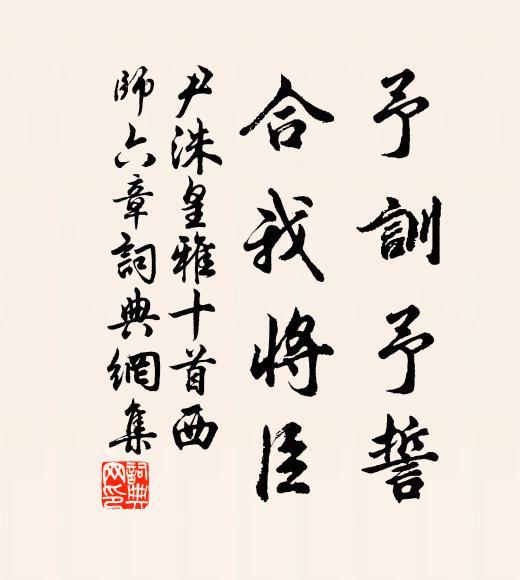 予訓予誓
合我將臣
尹洙皇雅十首西
師六章詞典網集
詞典網印